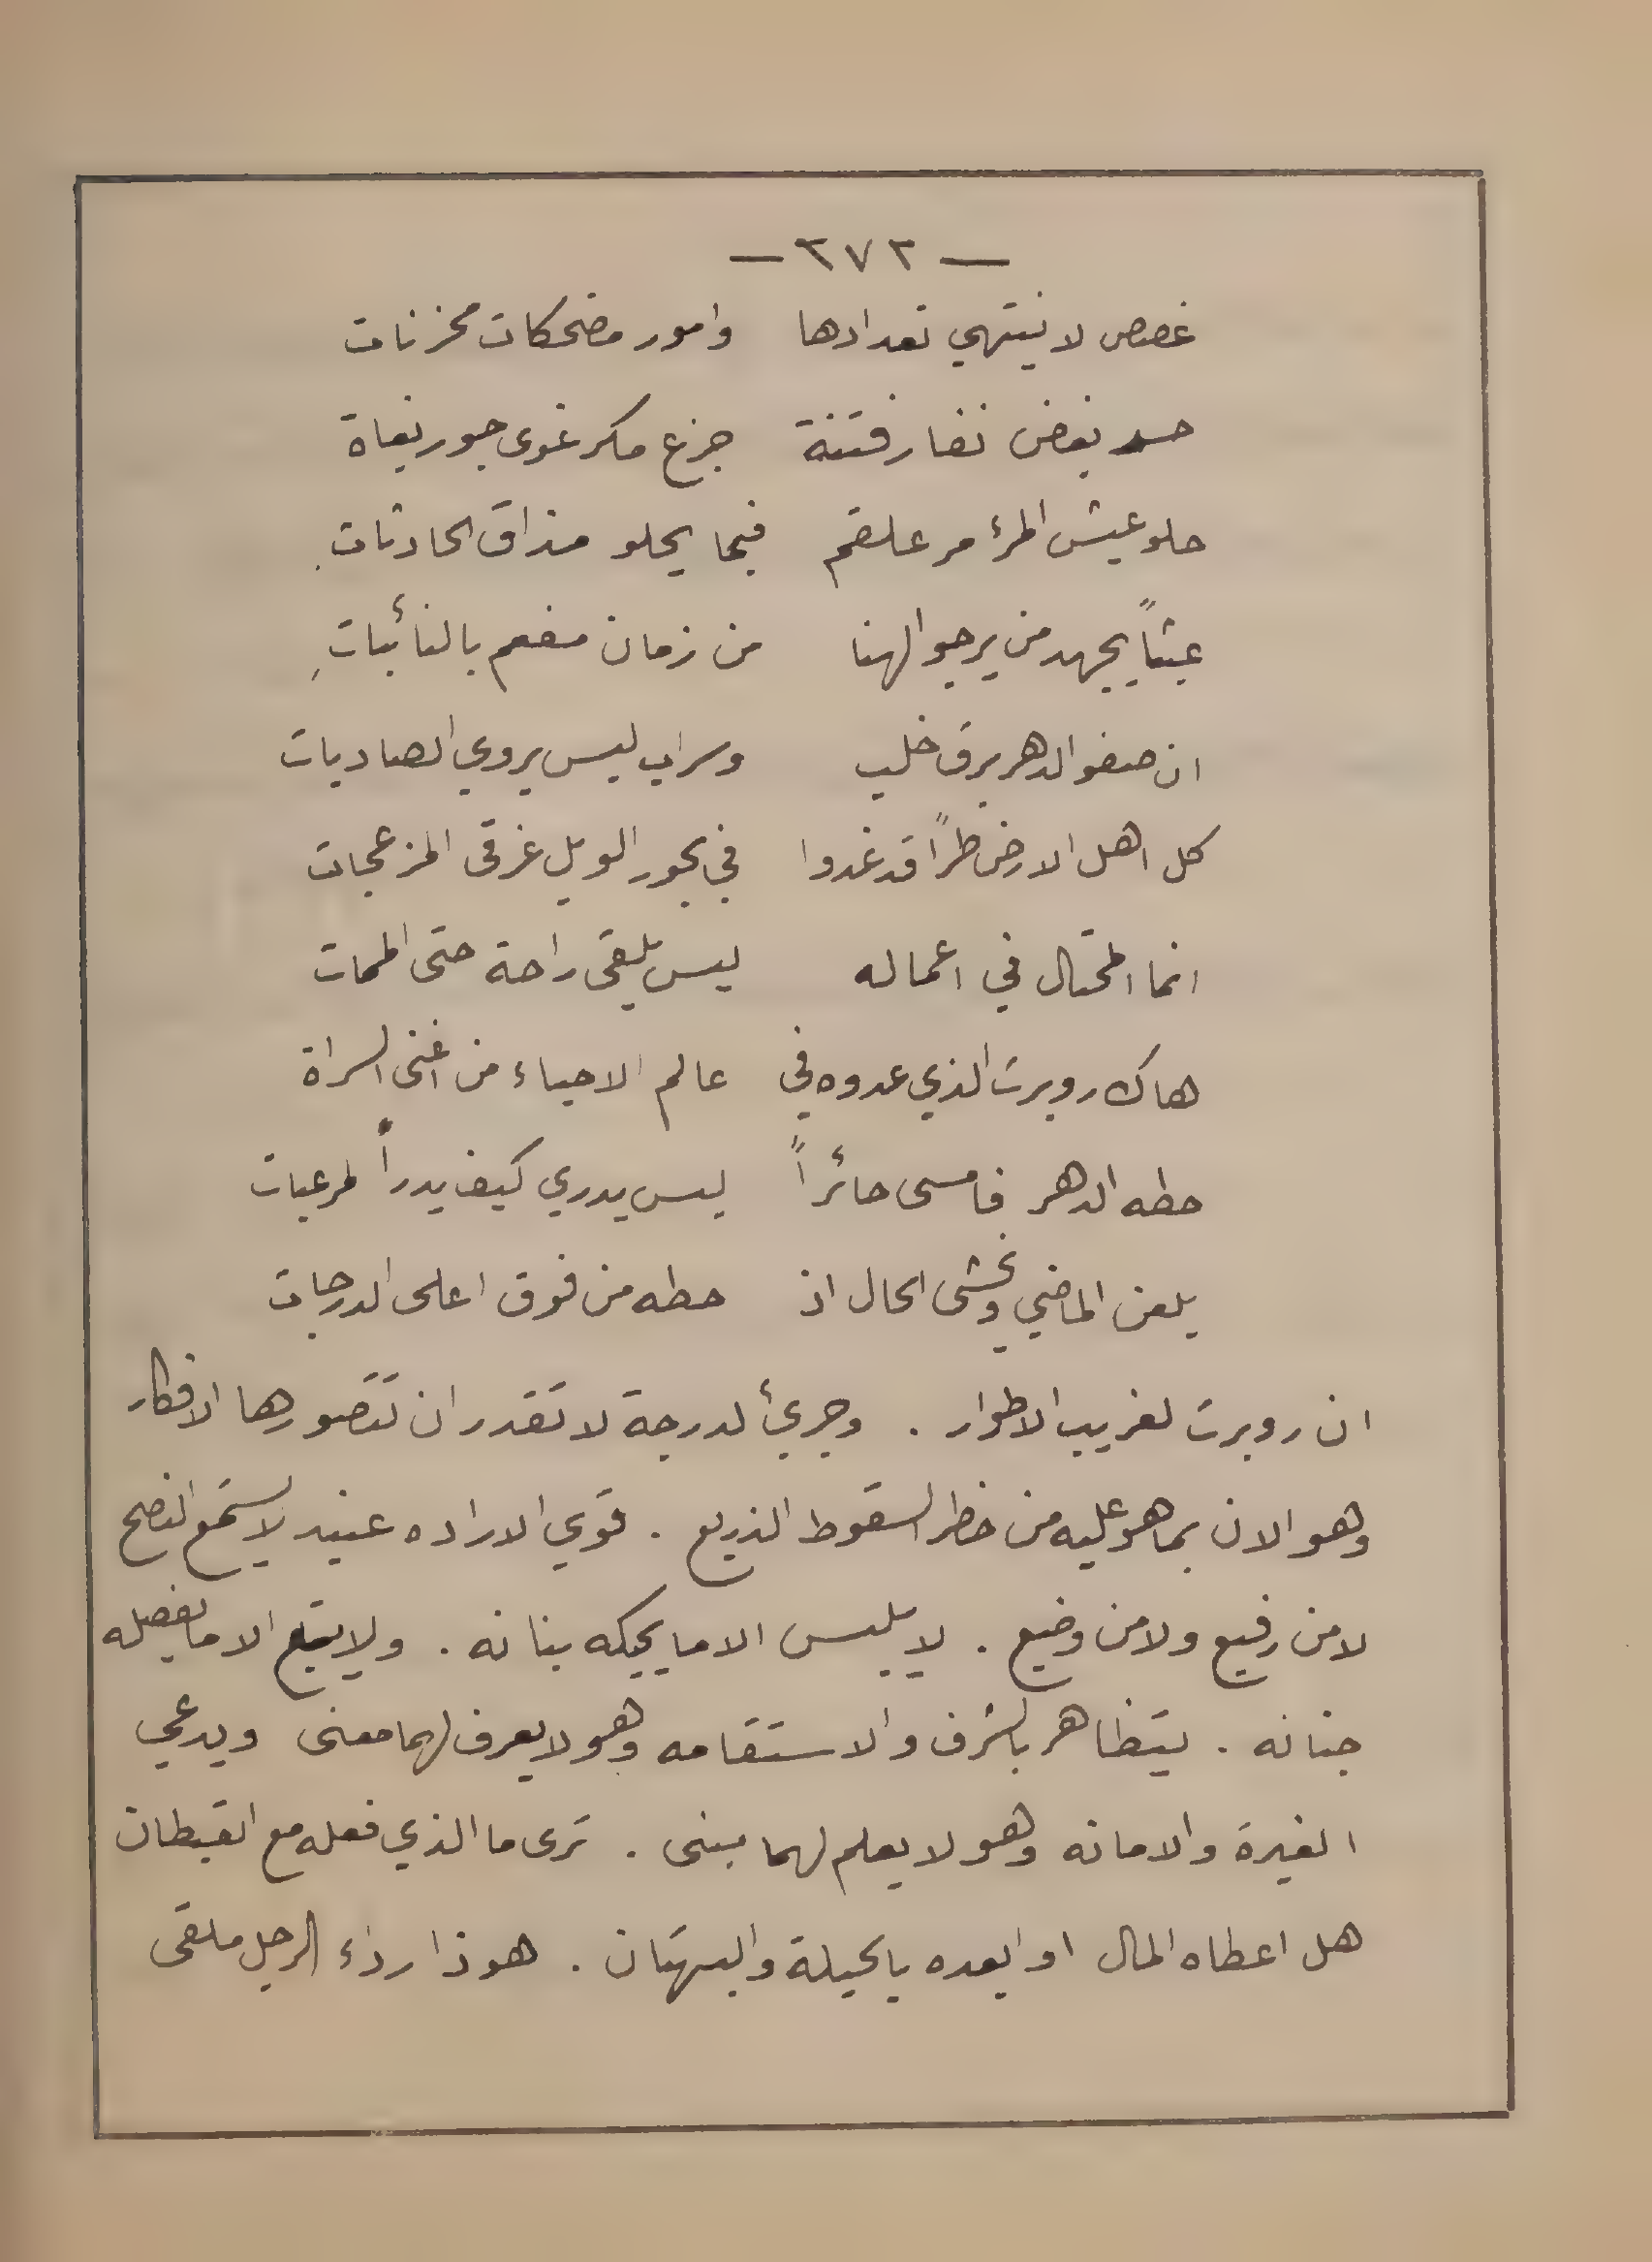 — ٣٧٢ —
غصص لا ينتهي تعدادها وامور مضحكات محزنات
حسد بغض نفار فتنة جزع مكر غوى جور بغاة
حلو عيش المرء مر علقم فيما يحلو مذاق الحادثات
عبثاً يجهد من يرجو الهنا من زمان مفعم بالنأئباتِ
ان صفو الدهر برق خلب وسراب ليس يروي الصاديات
كل اهل الارض طراً قد غدوا في بحور الويل غرقى المزعجات
انما المحتال في اعماله ليس يلقى راحة حتى الممات
هاك روبرت الذي عدوه في عالم الاحياء من اغنى السراة
حطه الدهر فامسى حائراً ليس يدري كيف يدرأ المرعبات
يلعن الماضي ويخشى الحال اذ حطه من فوق اعلى الدرجات
ان روبرت لغريب الاطوار . وجرئ لدرجة لا تقدر ان تتصورها الافكار
وهو الان بما هو عليه من خطر السقوط الذريع . قوي الاراده عنيد لا يستمع النصح
لا من رفيع ولا من وضيع . لا يلبس الا ما يحيكه بنانه . ولا يتبع الا ما يفصله
جنانه . يتظاهر بالشرف والاستقامه وهو لا يعرف لهما معنى ويدعي
الغيرة والامانه وهو لا يعلم لهما مبنى . ترى ما الذي فعله مع القبطان
هل اعطاه المال او ابعده بالحيلة والبهتان . هوذا رداء الرجل ملقى